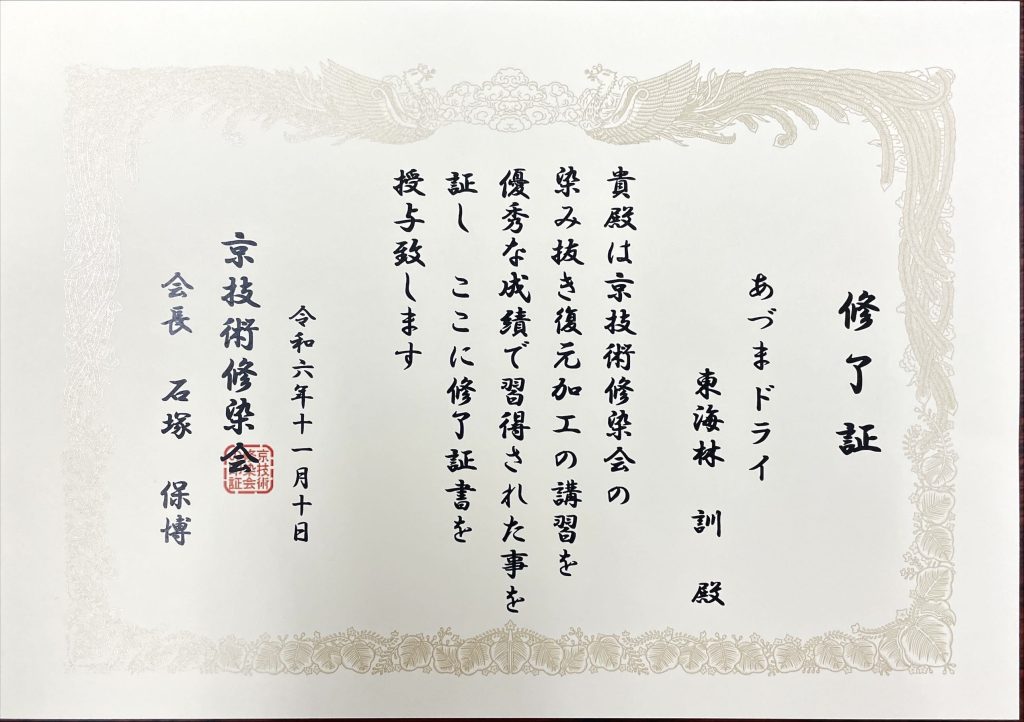 修了証
あづまドライ
東海林 訓 殿
貴殿は京技術修染会の
染み抜き復元加工の講習を
優秀な成績で習得された事を
証し ここに修了証書を
授与致します
令和六年十一月十日
京技術修染会
会長 石塚 保博